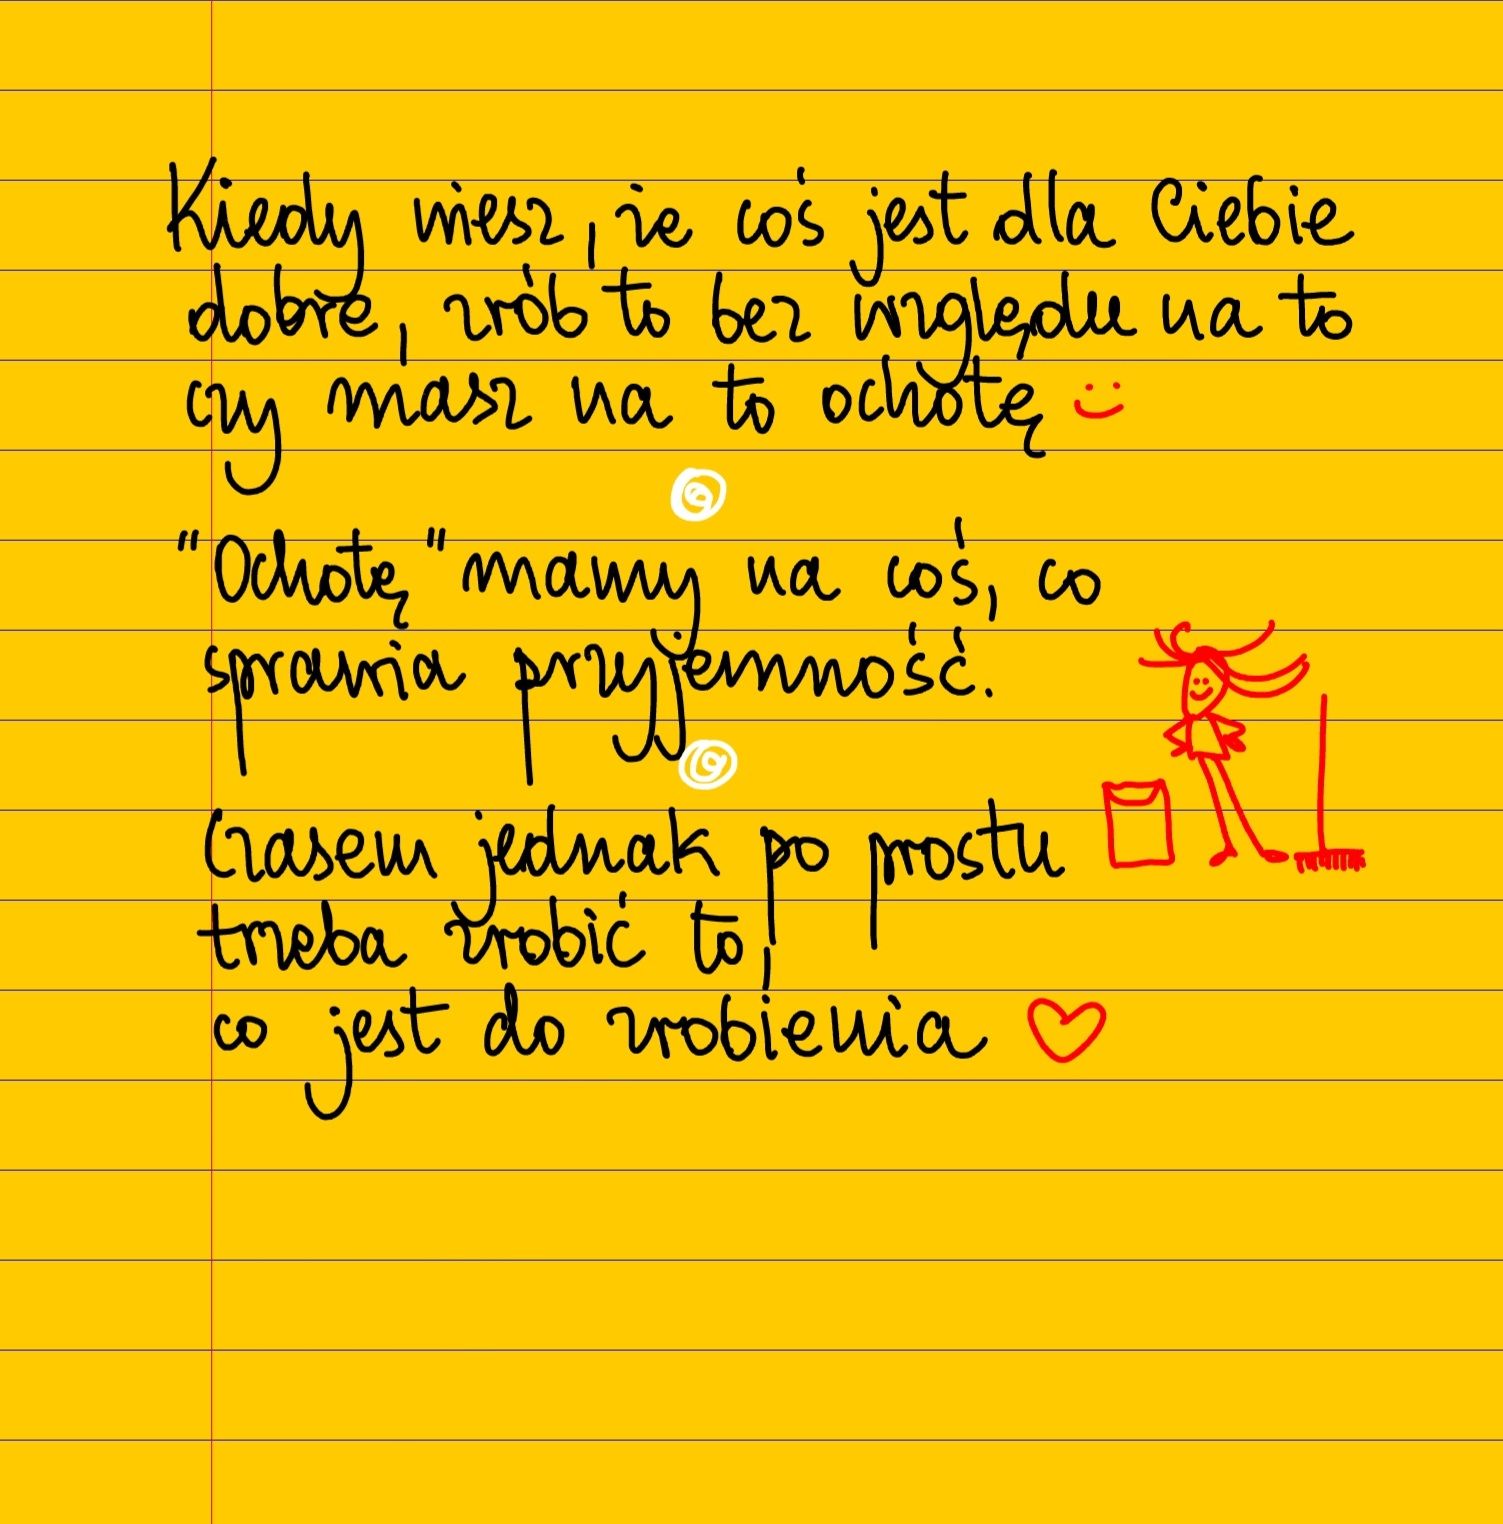 Kiedy wiesz, że coś jest dla Ciebie
dobre, zrób to bez względu na to
czy masz na to ochotę
"Ochotę" mamy na coś, co
sprawia przyjemność.
Czasem jednak po prostu
trzeba zrobić to,
co jest do zrobienia